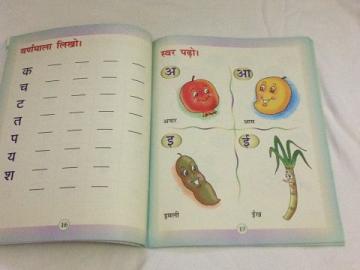 वर्णमाला लिखो।
क
च
ट
त
प
य
श
16
स्वर पढ़ो।
अ
आ
अनार
आम
इ
ई
इमली
ईख
17